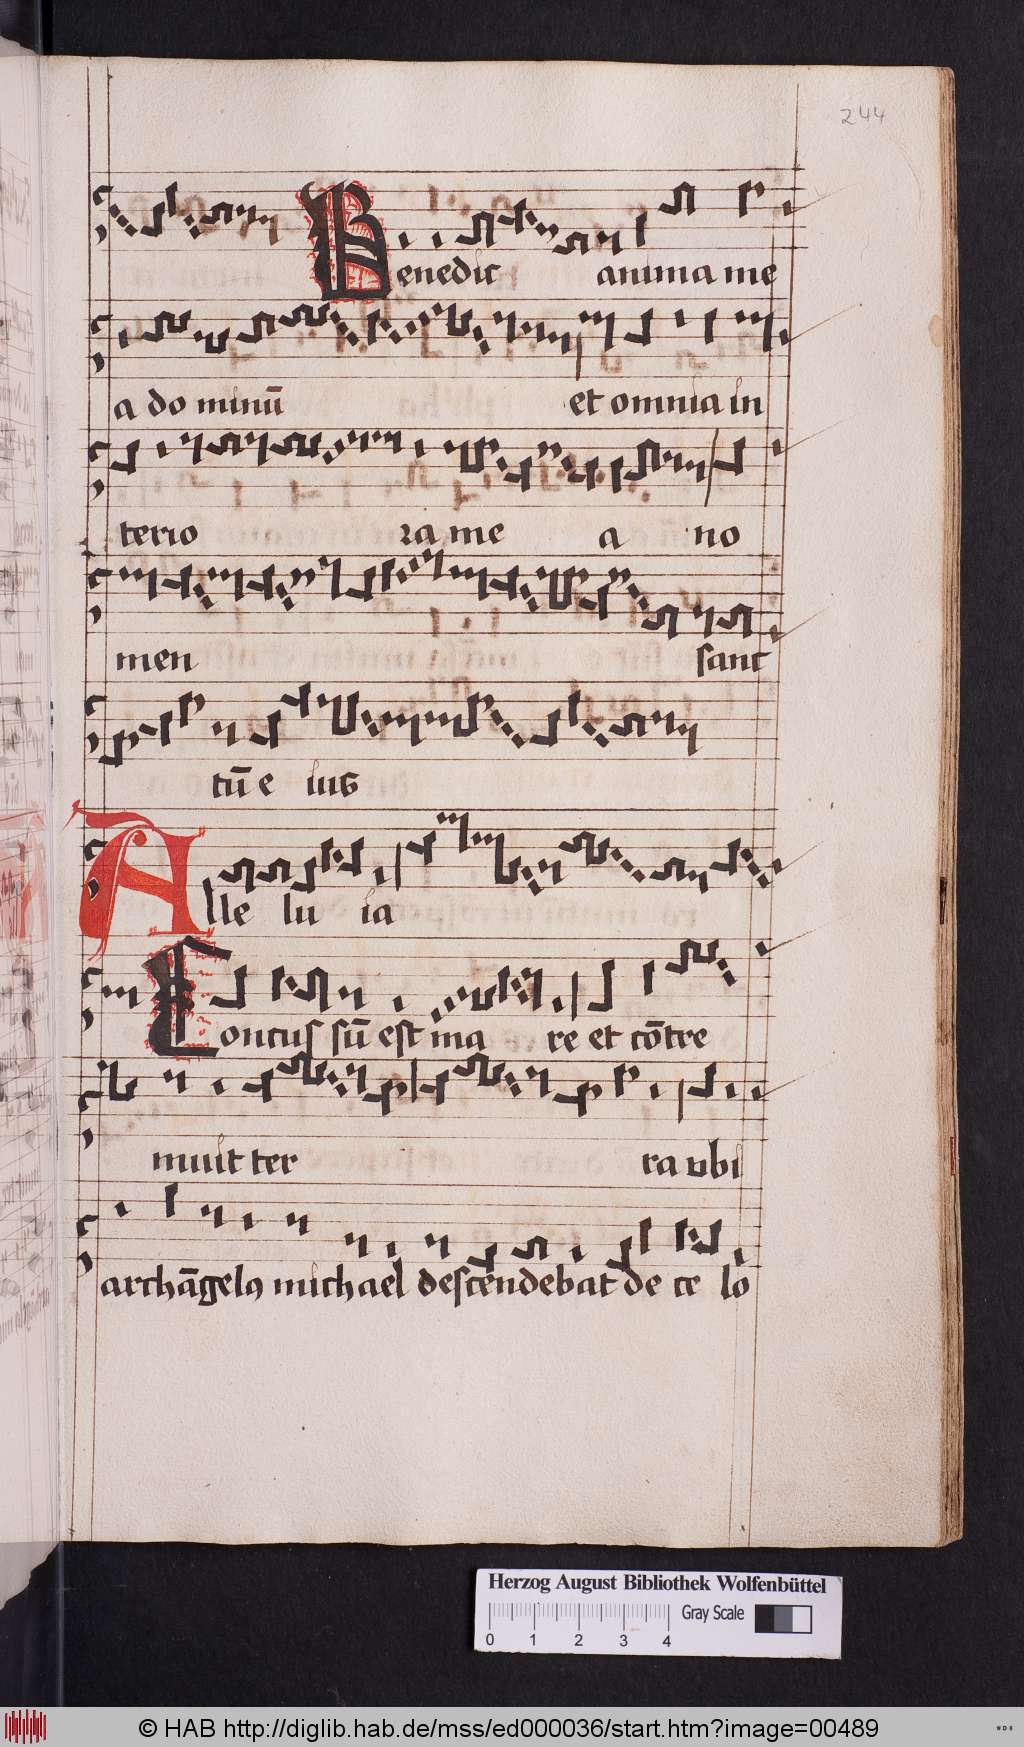 244
Benedic anima me
a do minū et omnia in
terio ra me a no
men sanc
tū e ius
Alle lu ia
Concus sū est ma re et cōtre
muit ter ra vbi
archāgelꝯ michael descendebat de ce lo
Herzog August Bibliothek Wolfenbüttel
Gray Scale
0 1 2 3 4
© HAB http://diglib.hab.de/mss/ed000036/start.htm?image=00489
WDB